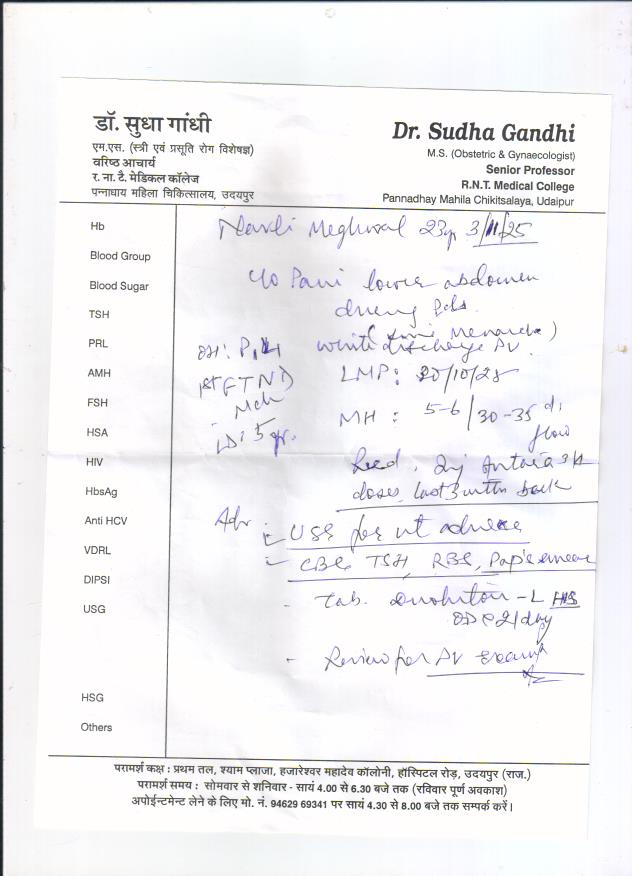 डॉ. सुधा गांधी
एम.एस. (स्त्री एवं प्रसूति रोग विशेषज्ञ)
वरिष्ठ आचार्य
र. ना. टै. मेडिकल कॉलेज
पन्नाधाय महिला चिकित्सालय, उदयपुर
Dr. Sudha Gandhi
M.S. (Obstetric & Gynaecologist)
Senior Professor
R.N.T. Medical College
Pannadhay Mahila Chikitsalaya, Udaipur
Hb
Blood Group
Blood Sugar
TSH
PRL
AMH
FSH
HSA
HIV
HbsAg
Anti HCV
VDRL
DIPSI
USG
HSG
Others
Meghwal 23y 3/11/25
c/o Pain lower abdomen
during
white discharge PV
OH: P1L1
1st FTND
Mch
LD: 5 yr.
LMP: 20/10/25
MH: 5-6/30-35 d
flow
Inj Antara 3
doses, last 3 mths back
Adv
- USG for ut adnexa
- CBC, TSH, RBS, Pap's smear
- Tab. -L HS
OD /day
- Review for PV exam
परामर्श कक्ष : प्रथम तल, श्याम प्लाजा, हजारेश्वर महादेव कॉलोनी, हॉस्पिटल रोड़, उदयपुर (राज.)
परामर्श समय : सोमवार से शनिवार - सायं 4.00 से 6.30 बजे तक (रविवार पूर्ण अवकाश)
अपोईन्टमेन्ट लेने के लिए मो. नं. 94629 69341 पर सायं 4.30 से 8.00 बजे तक सम्पर्क करें।